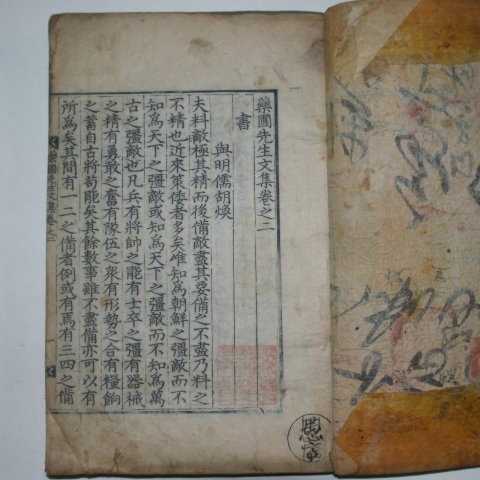 藥圃先生文集卷之二
書
與明儒胡煥
夫料敵極其精而後備敵盡其要備之不盡乃料之
不精也近來策倭者多矣唯知爲朝鮮之彊敵而不
知爲天下之彊敵或知爲天下之彊敵而不知爲萬
古之彊敵也凡兵有將帥之能有士卒之彊有器械
之精有勇敢之奮有隊伍之衆有形勢之合有糧餉
之蓄自古將苟能矣其餘數事雖不盡備亦可以有
所爲矣其間有一二之備者例或有焉有三四之備
藥圃先生文集卷之二